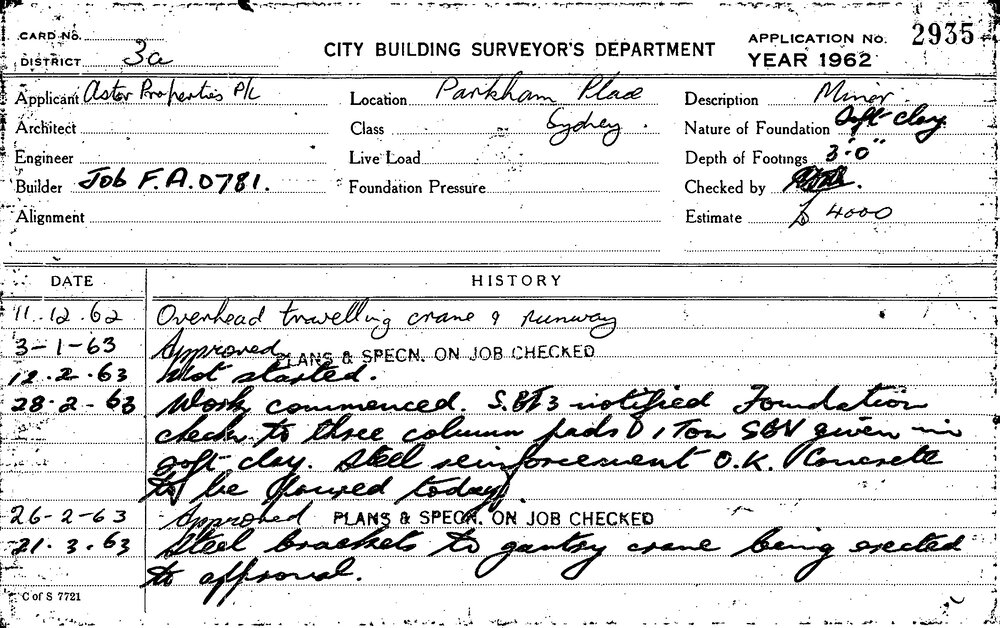 CARD No.
DISTRICT 3a
CITY BUILDING SURVEYOR'S DEPARTMENT
APPLICATION No. 2935
YEAR 1962
Applicant Astor Properties P/L
Location Parkham Place
Description Minor
Architect
Class Sydney.
Nature of Foundation Soft clay
Engineer
Live Load
Depth of Footings 3'-0"
Builder Job F.A.0781.
Foundation Pressure
Checked by
Alignment
Estimate £ 4000
DATE HISTORY
11.12.62 Overhead travelling crane & runway
3-1-63 Approved PLANS & SPECN. ON JOB CHECKED
12.2.63 Not started.
28.2-63 Work commenced. notified Foundation
check to three column pads 1 Ton given in
soft clay. Steel reinforcement O.K. Concrete
to be poured today.
26-2-63 Approved PLANS & SPECN. ON JOB CHECKED
21.3.63 Steel brackets to gantry crane being erected
to approval.
C of S 7721